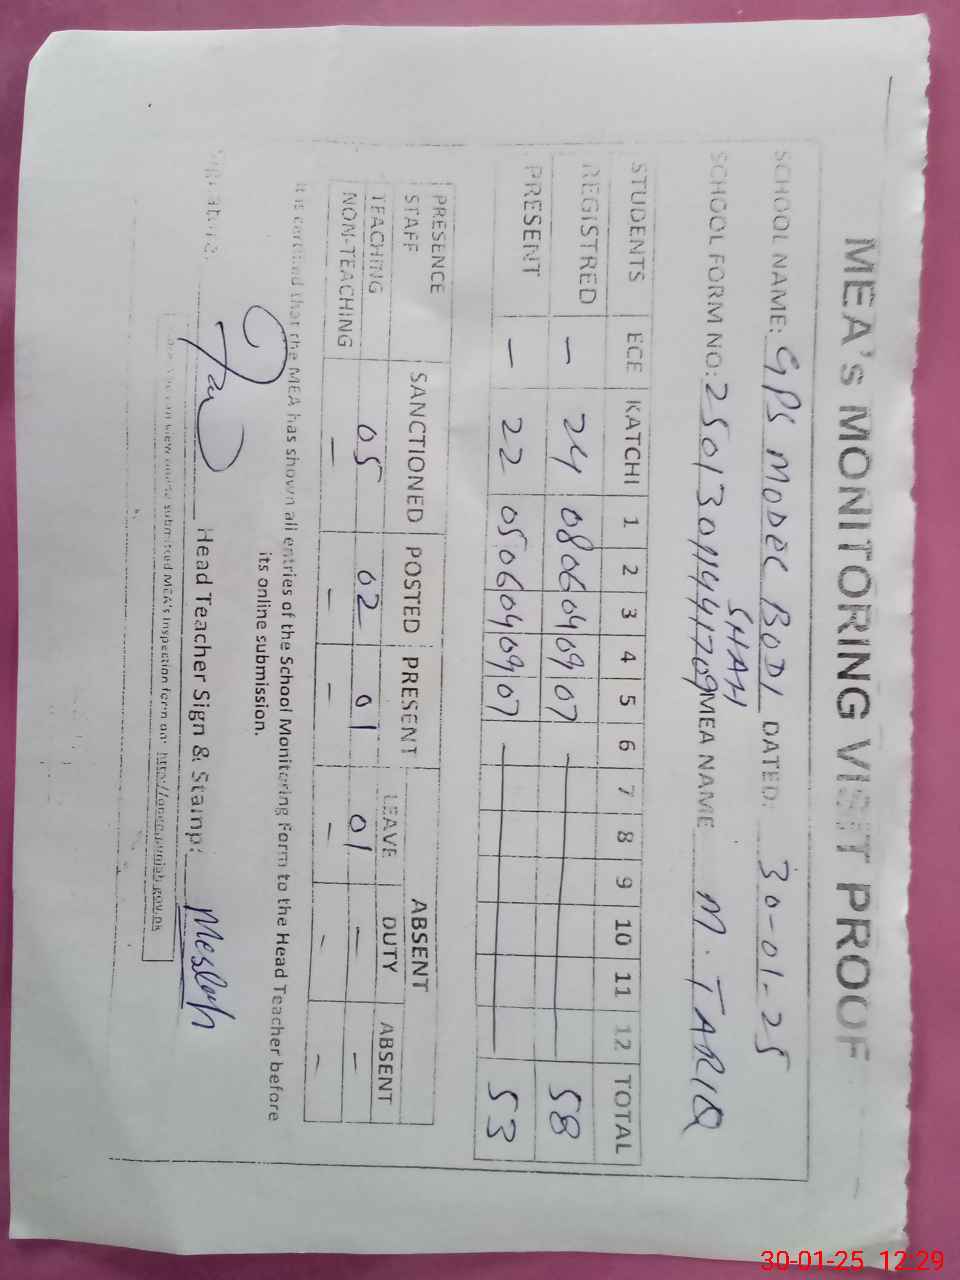 MEA's MONITORING VISIT PROOF
SCHOOL NAME: GPS MODEL BODI SHAH DATED: 30-01-25
SCHOOL FORM NO: MEA NAME M. TARIQ
STUDENTS ECE KATCHI 1 2 3 4 5 6 7 8 9 10 11 12 TOTAL
REGISTRED — 24 08 06 04 09 07 — 58
PRESENT — 22 05 06 04 09 07 — 53
PRESENCE STAFF SANCTIONED POSTED PRESENT ABSENT
LEAVE DUTY ABSENT
TEACHING 05 02 01 01 — —
NON-TEACHING — — — — — —
It is certified that the MEA has shown all entries of the School Monitoring Form to the Head Teacher before
its online submission.
Signature: Head Teacher Sign & Stamp:
you can view online submitted MEA's Inspection form on:
30-01-25 12:29